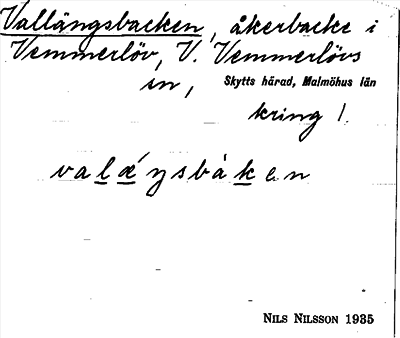 Vallängsbacken, åkerbacke i
Vemmerlöv, V. Vemmerlövs
sn, Skytts härad, Malmöhus län
kring 1.
valǽŋsbàken
NILS NILSSON 1935